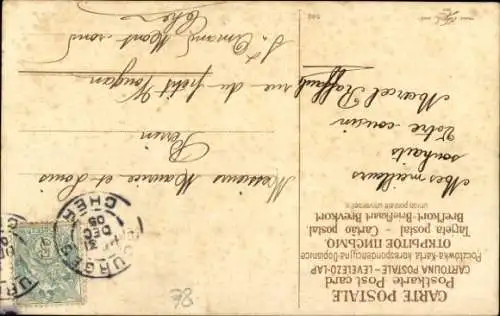 CARTE POSTALE
Postkarte Post card
CARTOLINA POSTALE – LEVELEZÖ-LAP
Pocztówka-Karta korespondencyjna-Dopisnice
ОТКРЫТОЕ ПИСЬМО.
Tarjeta postal - Cartão postal.
Brefkort-Brefkaart Brevkort
Union postale universelle
Mes meilleurs
souhaits
Votre cousin
Marcel Raffault
Messieurs Maurice et Louis
Perrin
rue du
St Amand Mont rond
Cher
BOURGES
31
DEC
05
CHER
78